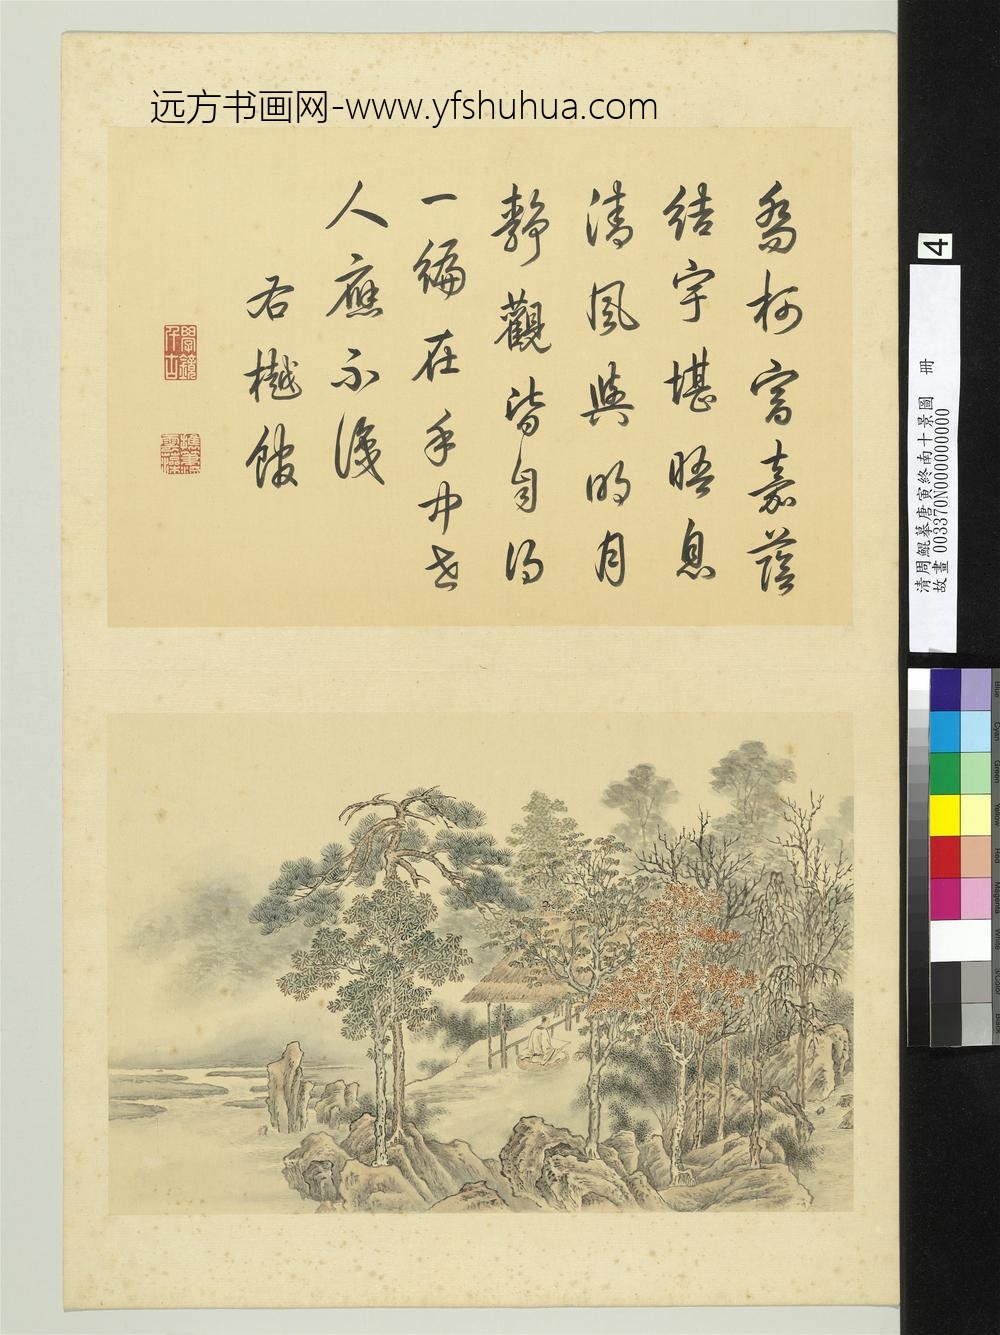 远方书画网-www.yfshuhua.com
喬柯富嘉蔭
結宇堪晤息
清風與明月
靜觀皆自得
一編在手中世
人應不識
右樾館
學鏡千古
4
清周鯤摹唐寅終南十景圖 冊
故畫 003370N000000000
Blue
Cyan
Green
Yellow
Red
Magenta